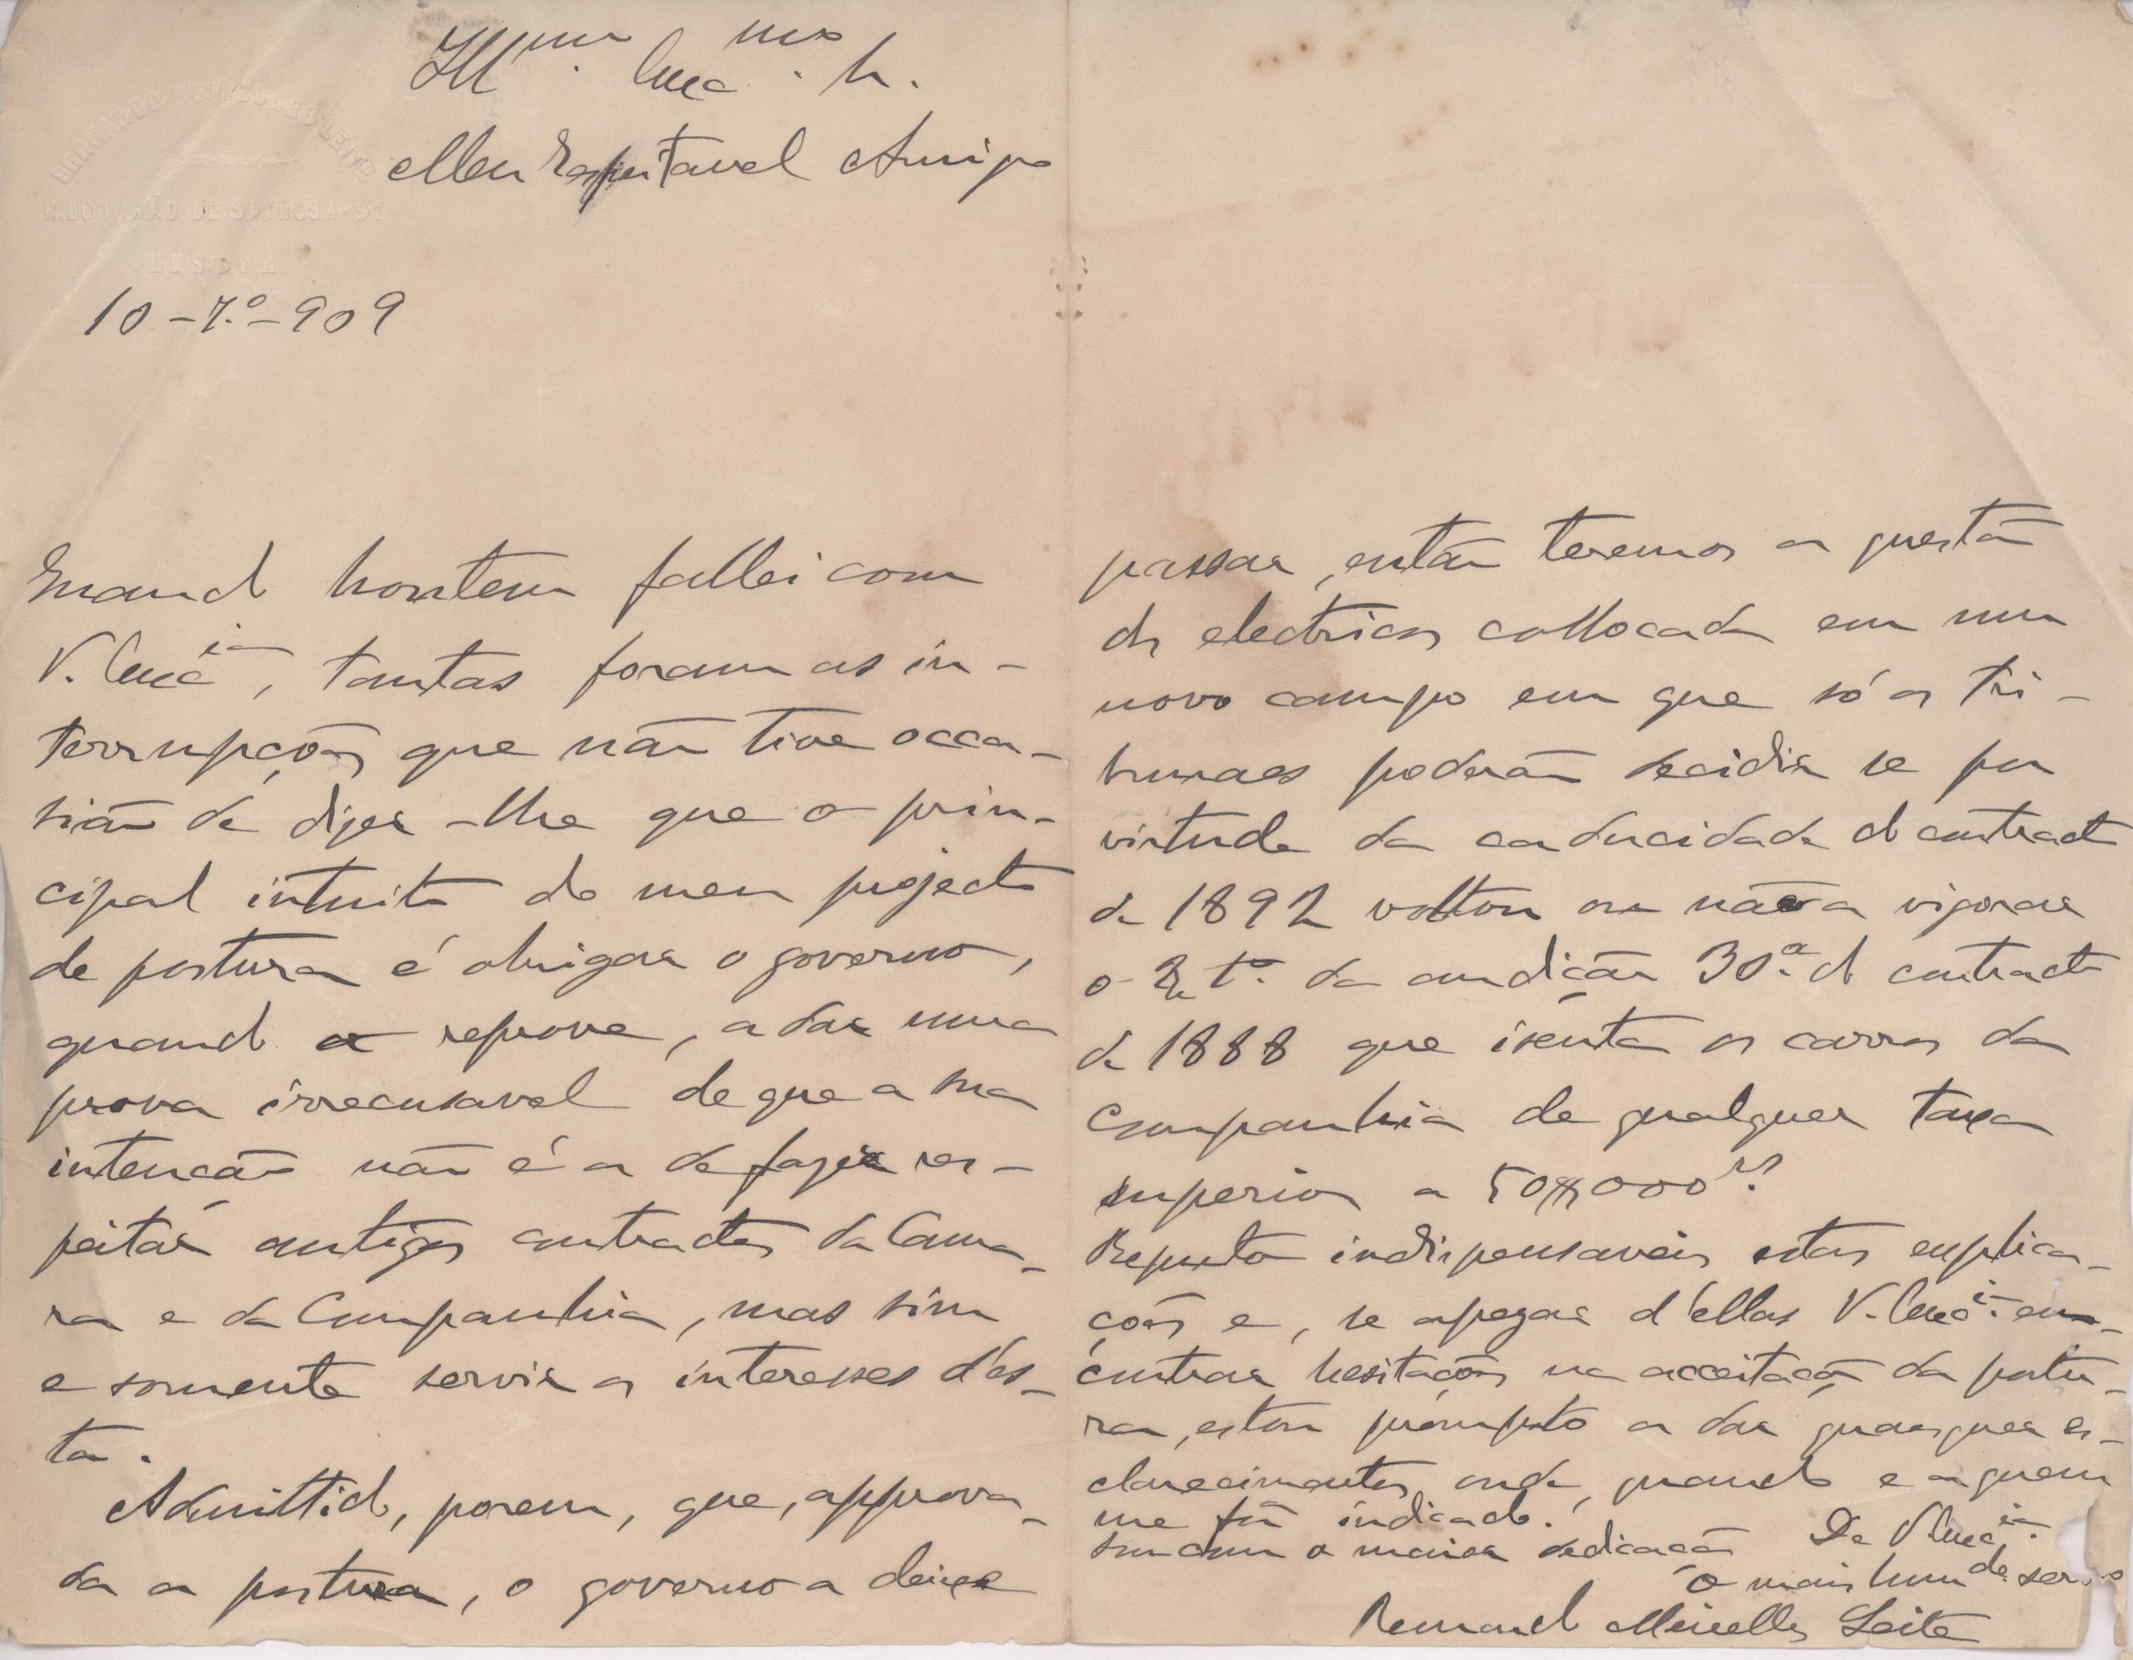 Ill.mo Exc.mo Sr.
Meu Respeitavel Amigo
LISBOA
10-7.º-909
Quando hontem fallei com
V. Exc.ia, tantas foram as in-
terrupções que não tive occa-
sião de dizer-lhe que o prin-
cipal intuito do meu projecto
de postura é obrigar o governo,
quando a reprove, a dar uma
prova irrecusavel de que a sua
intenção não é a de fazer res-
peitar antigos contractos da Cama-
ra e da Companhia, mas sim
e somente servir os interesses d'es-
ta.
Admittido, porem, que, approva-
da a postura, o governo a deixe
passar, então teremos a questão
dos electricos collocada em um
novo campo em que só os tri-
bunaes poderão decidir se por
virtude da caducidade do contracto
de 1892 voltou ou não a vigorar
o da condição 30.ª do contracto
de 1888 que isenta os carros da
Companhia de qualquer taxa
superior a 50$000 rs.
Reputo indispensaveis estas explica-
ções e, se apezar d'ellas V. Exc.ia en-
contrar hesitações na acceitação da postu-
ra, estou prompto a dar quaesquer es-
clarecimentos onde, quando e a quem
me fôr indicado.
Sou com a maior dedicação De V. Exc.ia
O mais hum.de
Meirelles Leite